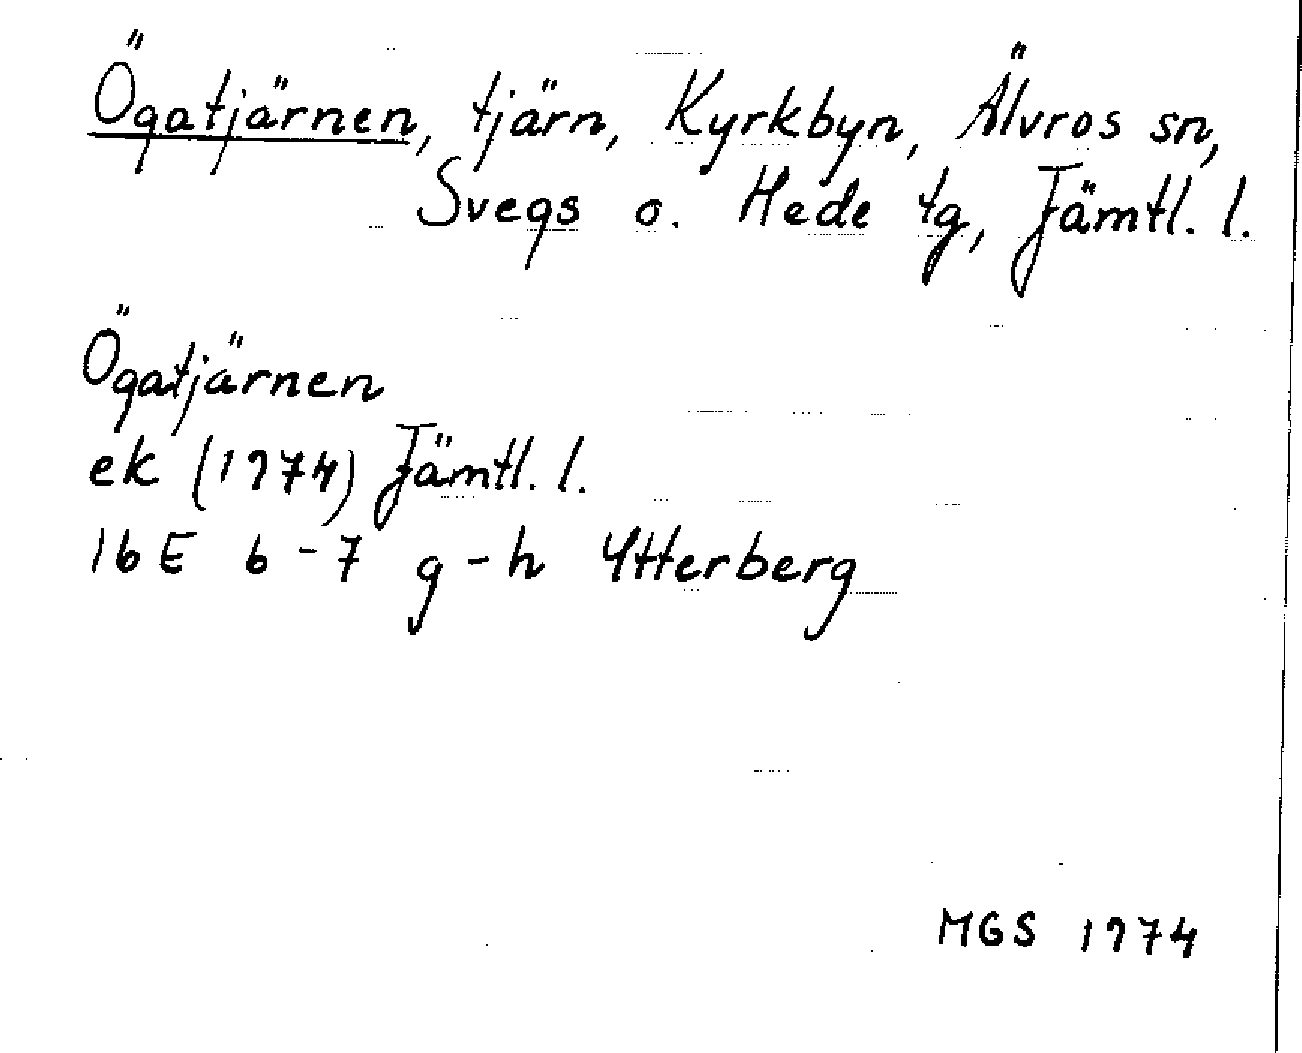 Ögatjärnen, tjärn, Kyrkbyn, Älvros sn,
Svegs o. Hede tg, Jämtl. l.
Ögatjärnen
ek (1974) Jämtl. l.
16 E 6-7 g-h Ytterberg
MGS 1974